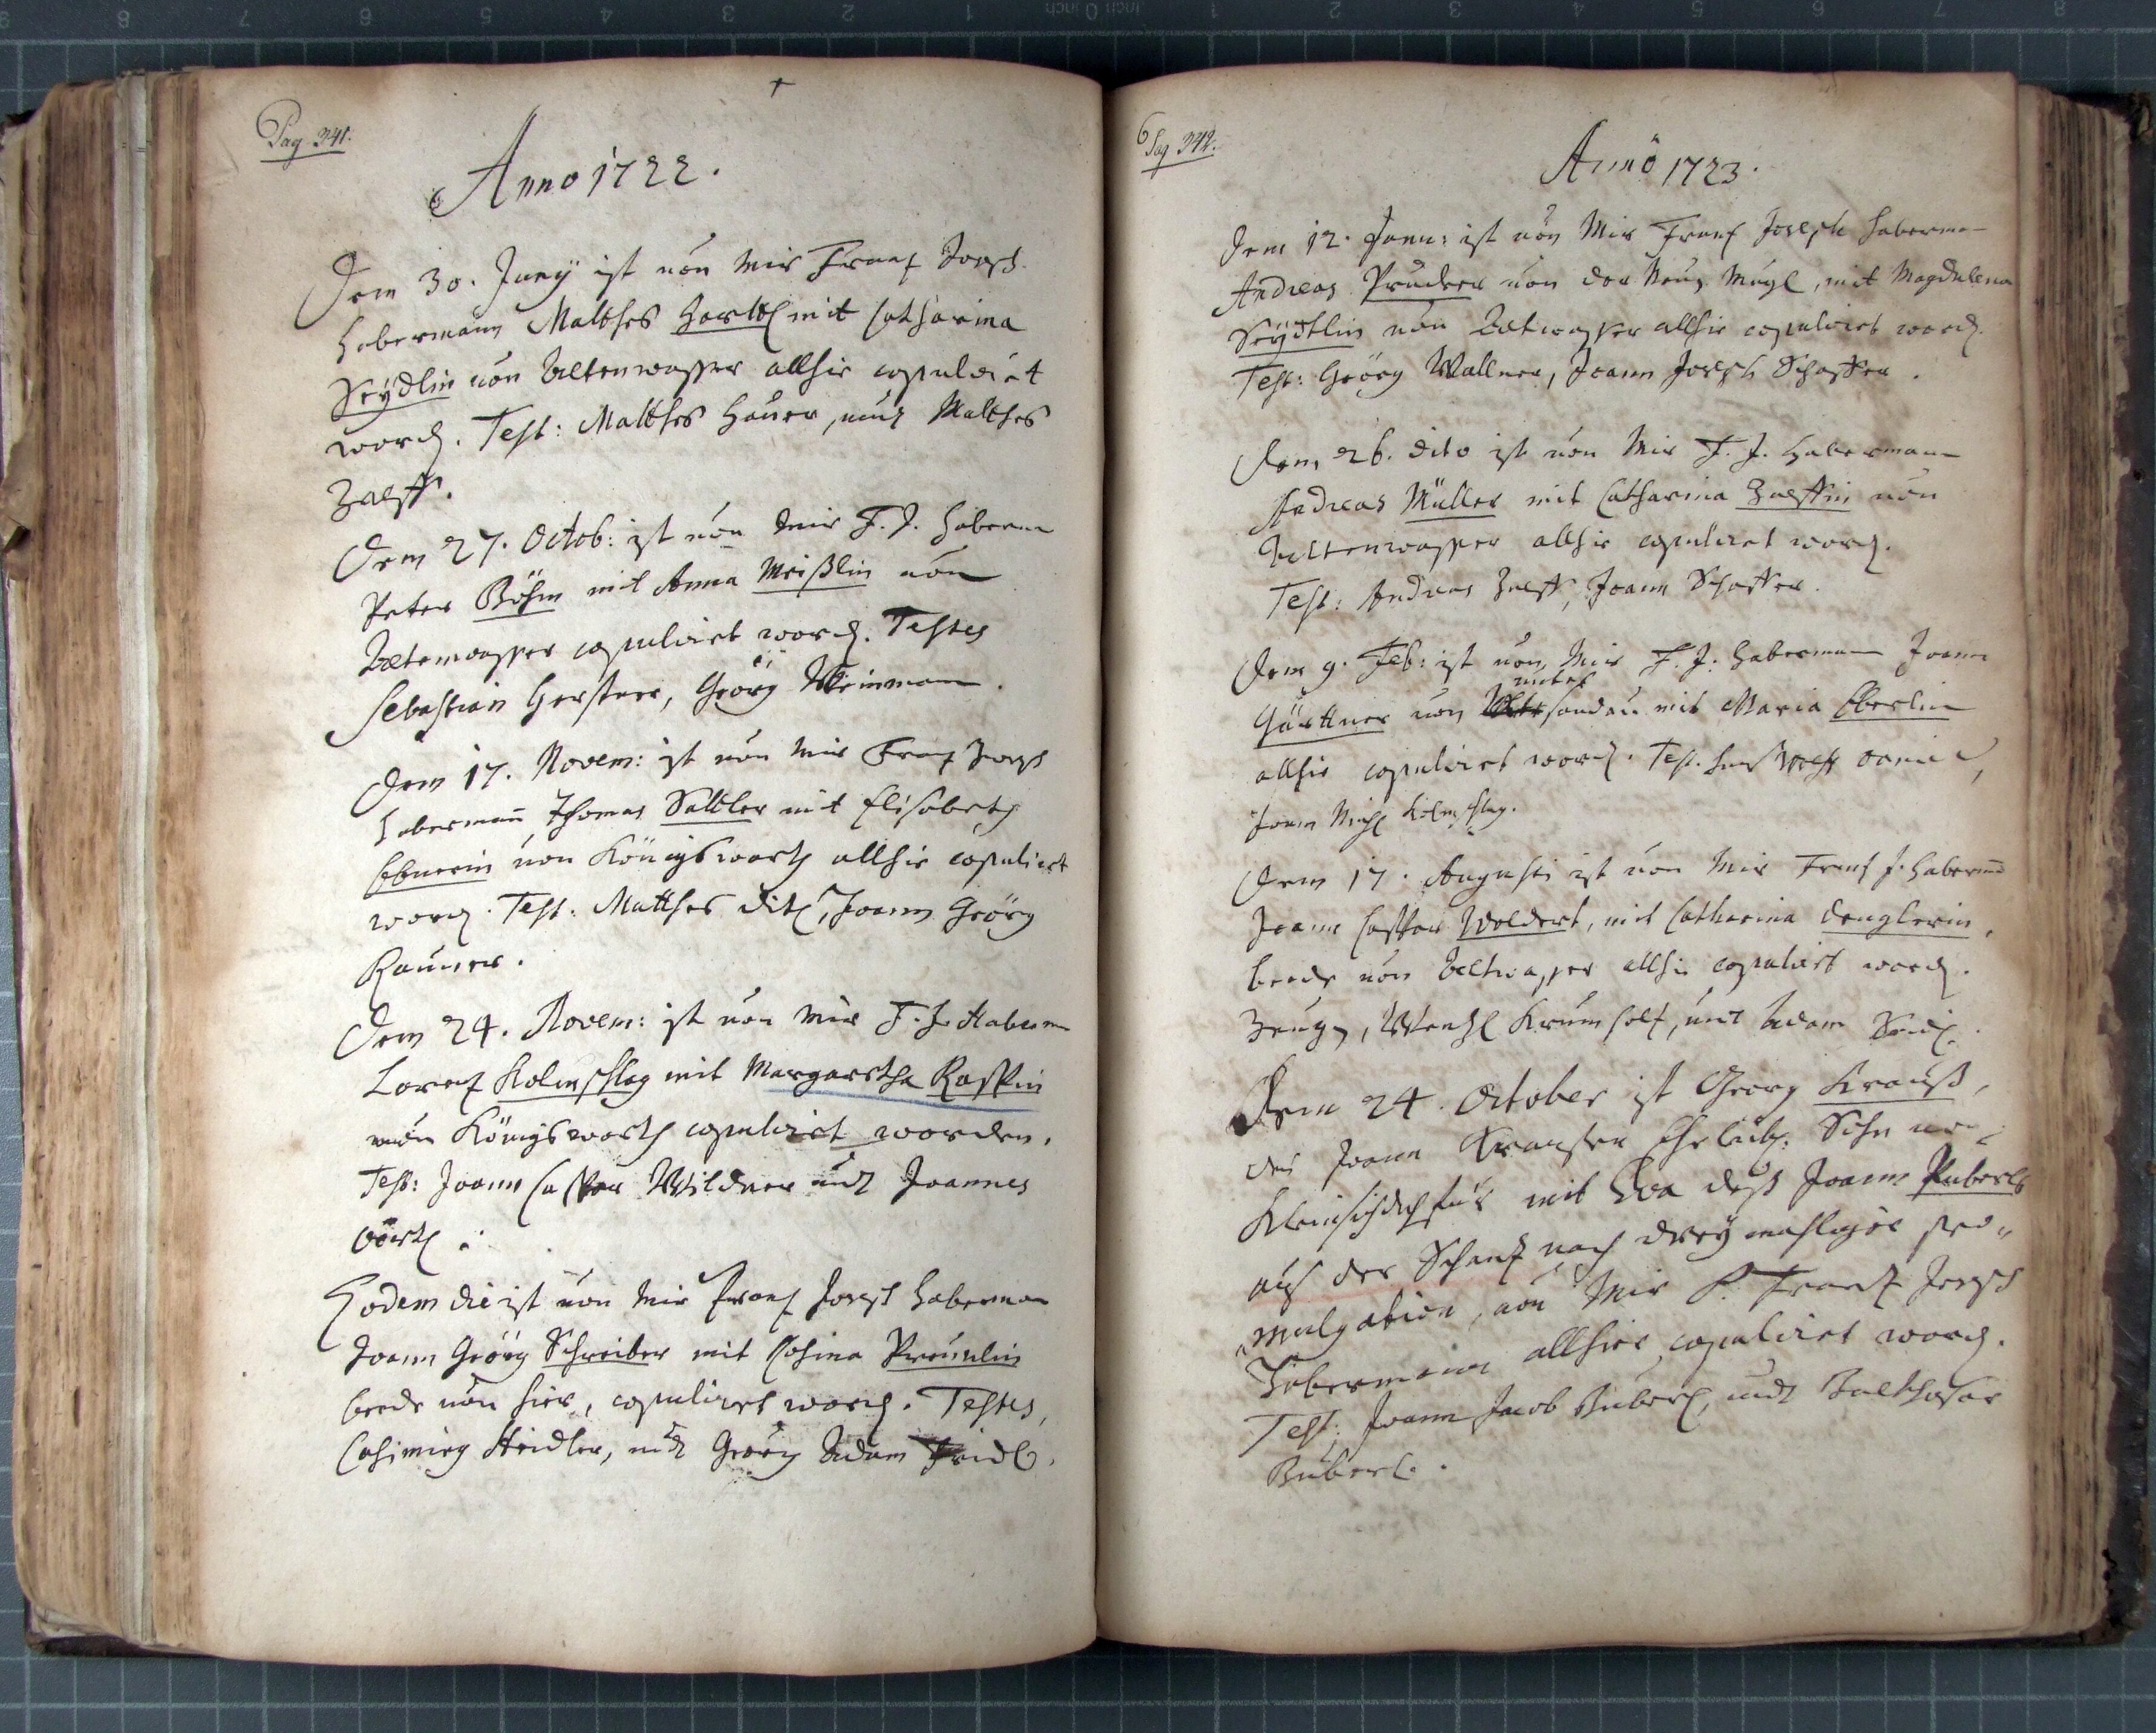 Pag 341.
Anno 1722.
Dem 30. Juny ist von mir Frantz Joseph
Habermann Matthes Hartl mit Catharina
Seÿdlin von Altenwasser allhir copuliret
word. Test: Matthes Hauer, und Matthes
Dem 27. Octob: ist von mir F. J. Haberm
Peter Böhm mit Anna Meißlin von
Altemwasser copuliret word. Testes
Sebastian Gerstner, Georg Weinmann.
Dem 17. Novem: ist von mir Frantz Joseph
Habermann Thomas Sattler mit Elisabeth
Ebnerin von Königswarth allhir copuliert
word. Test: Matthes Joann Georg
Rauner.
Dem 24. Novem: ist von mir F. J. Haberm
Lorentz Kolmschlag mit Margaretha Rasspin
von Königswarth copuliret worden.
Test: Joann Caspar Wildner und Joannes
Eodem die ist von mir Frantz Joseph Haberman
Joann Georg Schreiber mit Cosima
beede von hier, copuliret word. Testes,
Casimirg Heidler, und Georg Adam
Pag 342.
Anno 1723.
Dem 12. Janu: ist von mir Frantz Joseph Haberma
Andreas Pruckner von der Neug Mugl, mit Magdalena
Seÿdtlin von Altwasser allhir copuliret word.
Test: Georg Wallner, Joann Joseph Schaffer.
Dem 26. dito ist von mir F. J. Habermann
Andreas Müller mit Catharina von
Altenwasser allhir copuliret word.
Test: Andreas Joann Schaffer.
Dem 9. Feb: ist von mir F. J. Habermann Joann
unter
Gärttner von sandau mit Maria Eberlin
allhir copuliret word. Test.
Joann Mich Kolmschlag.
Dem 17. Augusti ist von mir Frantz J. Haberm
Joann Caspar Woldert, mit Catharina Denglerin,
beede von Altwasser allhir copuliret word.
Zeug, Wentzl Krumholtz, und Adam Seidl.
Dem 24. October ist Georg Krauß,
des Joann Kraussen Ehelich: Sohn von
mit Eva deß Joann Puberls
auß der Schantz nach dreymahliger pro„
„mulgation, von mir P. Frantz Joseph
Habermann allhier copuliret word.
Test: Joann Jacob Buberl, und Balthasar
Buberl.